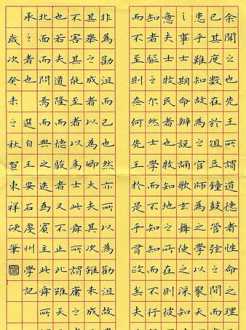 余聞之也先王所謂道德者性命之理
已其度數在於俎豆鼓管弦之間而
患乎難知故為之官師為之學以聚天
之事士期命辯說誦歌弦舞使之深知其
意夫士牧民者也牧知地之所在則彼
知者驅之尔然士學而不知知而不行
而不至則奈何先王於是乎有政矣夫
非為勸沮而已也然亦所以為勸沮故
其學之成者以為卿大夫其次雖未成
也若夫道隆而德駿者又不止此雖天
北面而問焉而與之迭為賓主此舜所
承之者也 選自王安石虔州學記
歲次癸未之秋 東祥硬筆